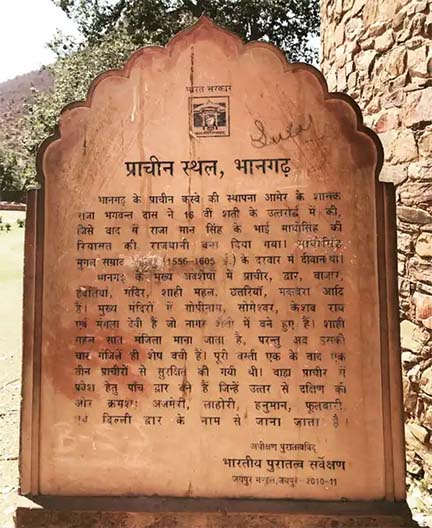 भारत सरकार
प्राचीन स्थल, भानगढ़
भानगढ़ के प्राचीन कस्वे की स्थापना आमेर के शासक
राजा भगवन्त दास ने 16 वीं शती के उत्तरार्द्ध में की,
जिसे बाद में राजा मान सिंह के भाई माधोसिंह की
रियासत की राजधानी बना दिया गया। माधोसिंह
मुगल सम्राट (1556-1605 ई.) के दरबार में दीवान थे।
भानगढ़ के मुख्य अवशेषों में प्राचीर, द्वार, बाजार,
हवेलियां, मंदिर, शाही महल, छतरियां, मकबरा आदि
है। मुख्य मंदिरों में गोपीनाथ, सोमेश्वर, केशव राय
एवं मंगला देवी है जो नागर शैली में बने हुए हैं। शाही
महल सात मंजिला माना जाता है, परन्तु अब इसकी
चार मंजिलें ही शेष बची हैं। पूरी बस्ती एक के बाद एक
तीन प्राचीरों से सुरक्षित की गयी थी। वाह्य प्राचीर में
प्रवेश हेतु पाँच द्वार बने हैं जिन्हें उत्तर से दक्षिण की
ओर क्रमशः अजमेरी, लाहोरी, हनुमान, फूलबारी
एवं दिल्ली द्वार के नाम से जाना जाता है।
अधीक्षण पुरातत्वविद्
भारतीय पुरातत्व सर्वेक्षण
जयपुर मण्डल, जयपुर - 2010-11